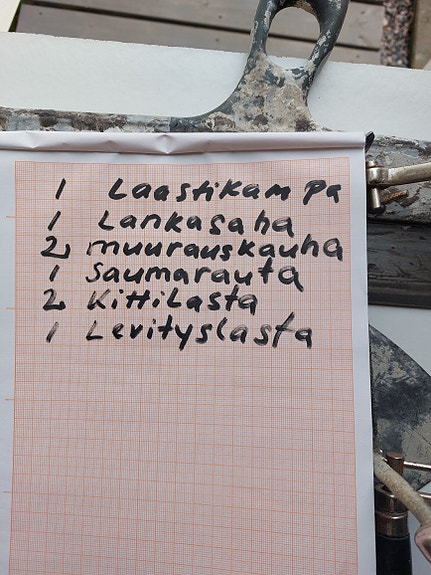 1 Laastikampa
1 Lankasaha
2 muurauskauha
1 Saumarauta
2 Kittilasta
1 Levityslasta